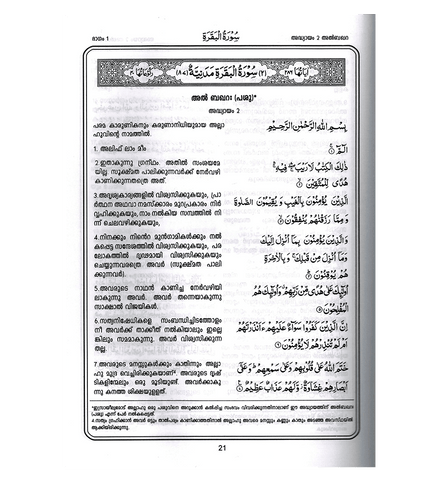 ഭാഗം 1 سُورَةُ الْبَقَرَةِ അദ്ധ്യായം 2 അൽബഖറ
(٢) سُورَةُ الْبَقَرَةِ مَدَنِيَّةٌ (٨٧)
അൽ ബഖറഃ (പശു)*
അദ്ധ്യായം 2
പരമ കാരുണികനും കരുണാനിധിയുമായ അല്ലാ
ഹുവിന്റെ നാമത്തിൽ.
بِسْمِ اللهِ الرَّحْمٰنِ الرَّحِيْمِ
1. അലിഫ് ലാം മീം
الٓمّٓ ۝
2.ഇതാകുന്നു ഗ്രന്ഥം. അതിൽ സംശയമേ
യില്ല. സൂക്ഷ്മത പാലിക്കുന്നവർക്ക് നേർവഴി
കാണിക്കുന്നത്രെ അത്.
ذٰلِكَ الْكِتٰبُ لَا رَيْبَ فِيْهِ
هُدًى لِّلْمُتَّقِيْنَ
3.അദൃശ്യകാര്യങ്ങളിൽ വിശ്വസിക്കുകയും, പ്രാ
ർത്ഥന അഥവാ നമസ്ക്കാരം മുറപ്രകാരം നിർ
വ്വഹിക്കുകയും, നാം നൽകിയ സമ്പത്തിൽ നി
ന്ന് ചെലവഴിക്കുകയും,
الَّذِيْنَ يُؤْمِنُوْنَ بِالْغَيْبِ وَيُقِيْمُوْنَ الصَّلٰوةَ
وَمِمَّا رَزَقْنٰهُمْ يُنْفِقُوْنَ
4.നിനക്കും നിന്റെ മുൻഗാമികൾക്കും നൽ
കപ്പെട്ട സന്ദേശത്തിൽ വിശ്വസിക്കുകയും, പര
ലോകത്തിൽ ദൃഢമായി വിശ്വസിക്കുകയും
ചെയ്യുന്നവരത്രെ അവർ (സൂക്ഷ്മത പാലി
ക്കുന്നവർ).
وَالَّذِيْنَ يُؤْمِنُوْنَ بِمَا اُنْزِلَ اِلَيْكَ
وَمَا اُنْزِلَ مِنْ قَبْلِكَ وَبِالْاٰخِرَةِ
هُمْ يُوْقِنُوْنَ
5.അവരുടെ നാഥൻ കാണിച്ച നേർവഴിയി
ലാകുന്നു അവർ. അവർ തന്നെയാകുന്നു
സാക്ഷാൽ വിജയികൾ.
اُولٰٓئِكَ عَلٰى هُدًى مِّنْ رَّبِّهِمْ وَاُولٰٓئِكَ هُمُ
الْمُفْلِحُوْنَ
6.സത്യനിഷേധികളെ സംബന്ധിച്ചിടത്തോളം
നീ അവർക്ക് താക്കീത് നൽകിയാലും ഇല്ലെ
ങ്കിലും സമമാകുന്നു. അവർ വിശ്വസിക്കുന്ന
തല്ല.
اِنَّ الَّذِيْنَ كَفَرُوْا سَوَآءٌ عَلَيْهِمْ ءَاَنْذَرْتَهُمْ
اَمْ لَمْ تُنْذِرْهُمْ لَا يُؤْمِنُوْنَ
7.അവരുടെ മനസ്സുകൾക്കും കാതിന്നും അല്ലാ
ഹു മുദ്ര വെച്ചിരിക്കുകയാണ്. അവരുടെ ദൃഷ്
ടികളിന്മേലും ഒരു മൂടിയുണ്ട്. അവർക്കാകു
ന്നു കനത്ത ശിക്ഷയുള്ളത്.
خَتَمَ اللهُ عَلٰى قُلُوْبِهِمْ وَعَلٰى سَمْعِهِمْ وَعَلٰٓى
اَبْصَارِهِمْ غِشَاوَةٌ وَّلَهُمْ عَذَابٌ عَظِيْمٌ
21